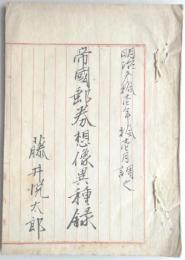 明治廿拾七年拾壱月調之
帝國郵券想像異種録
藤井悦太郎